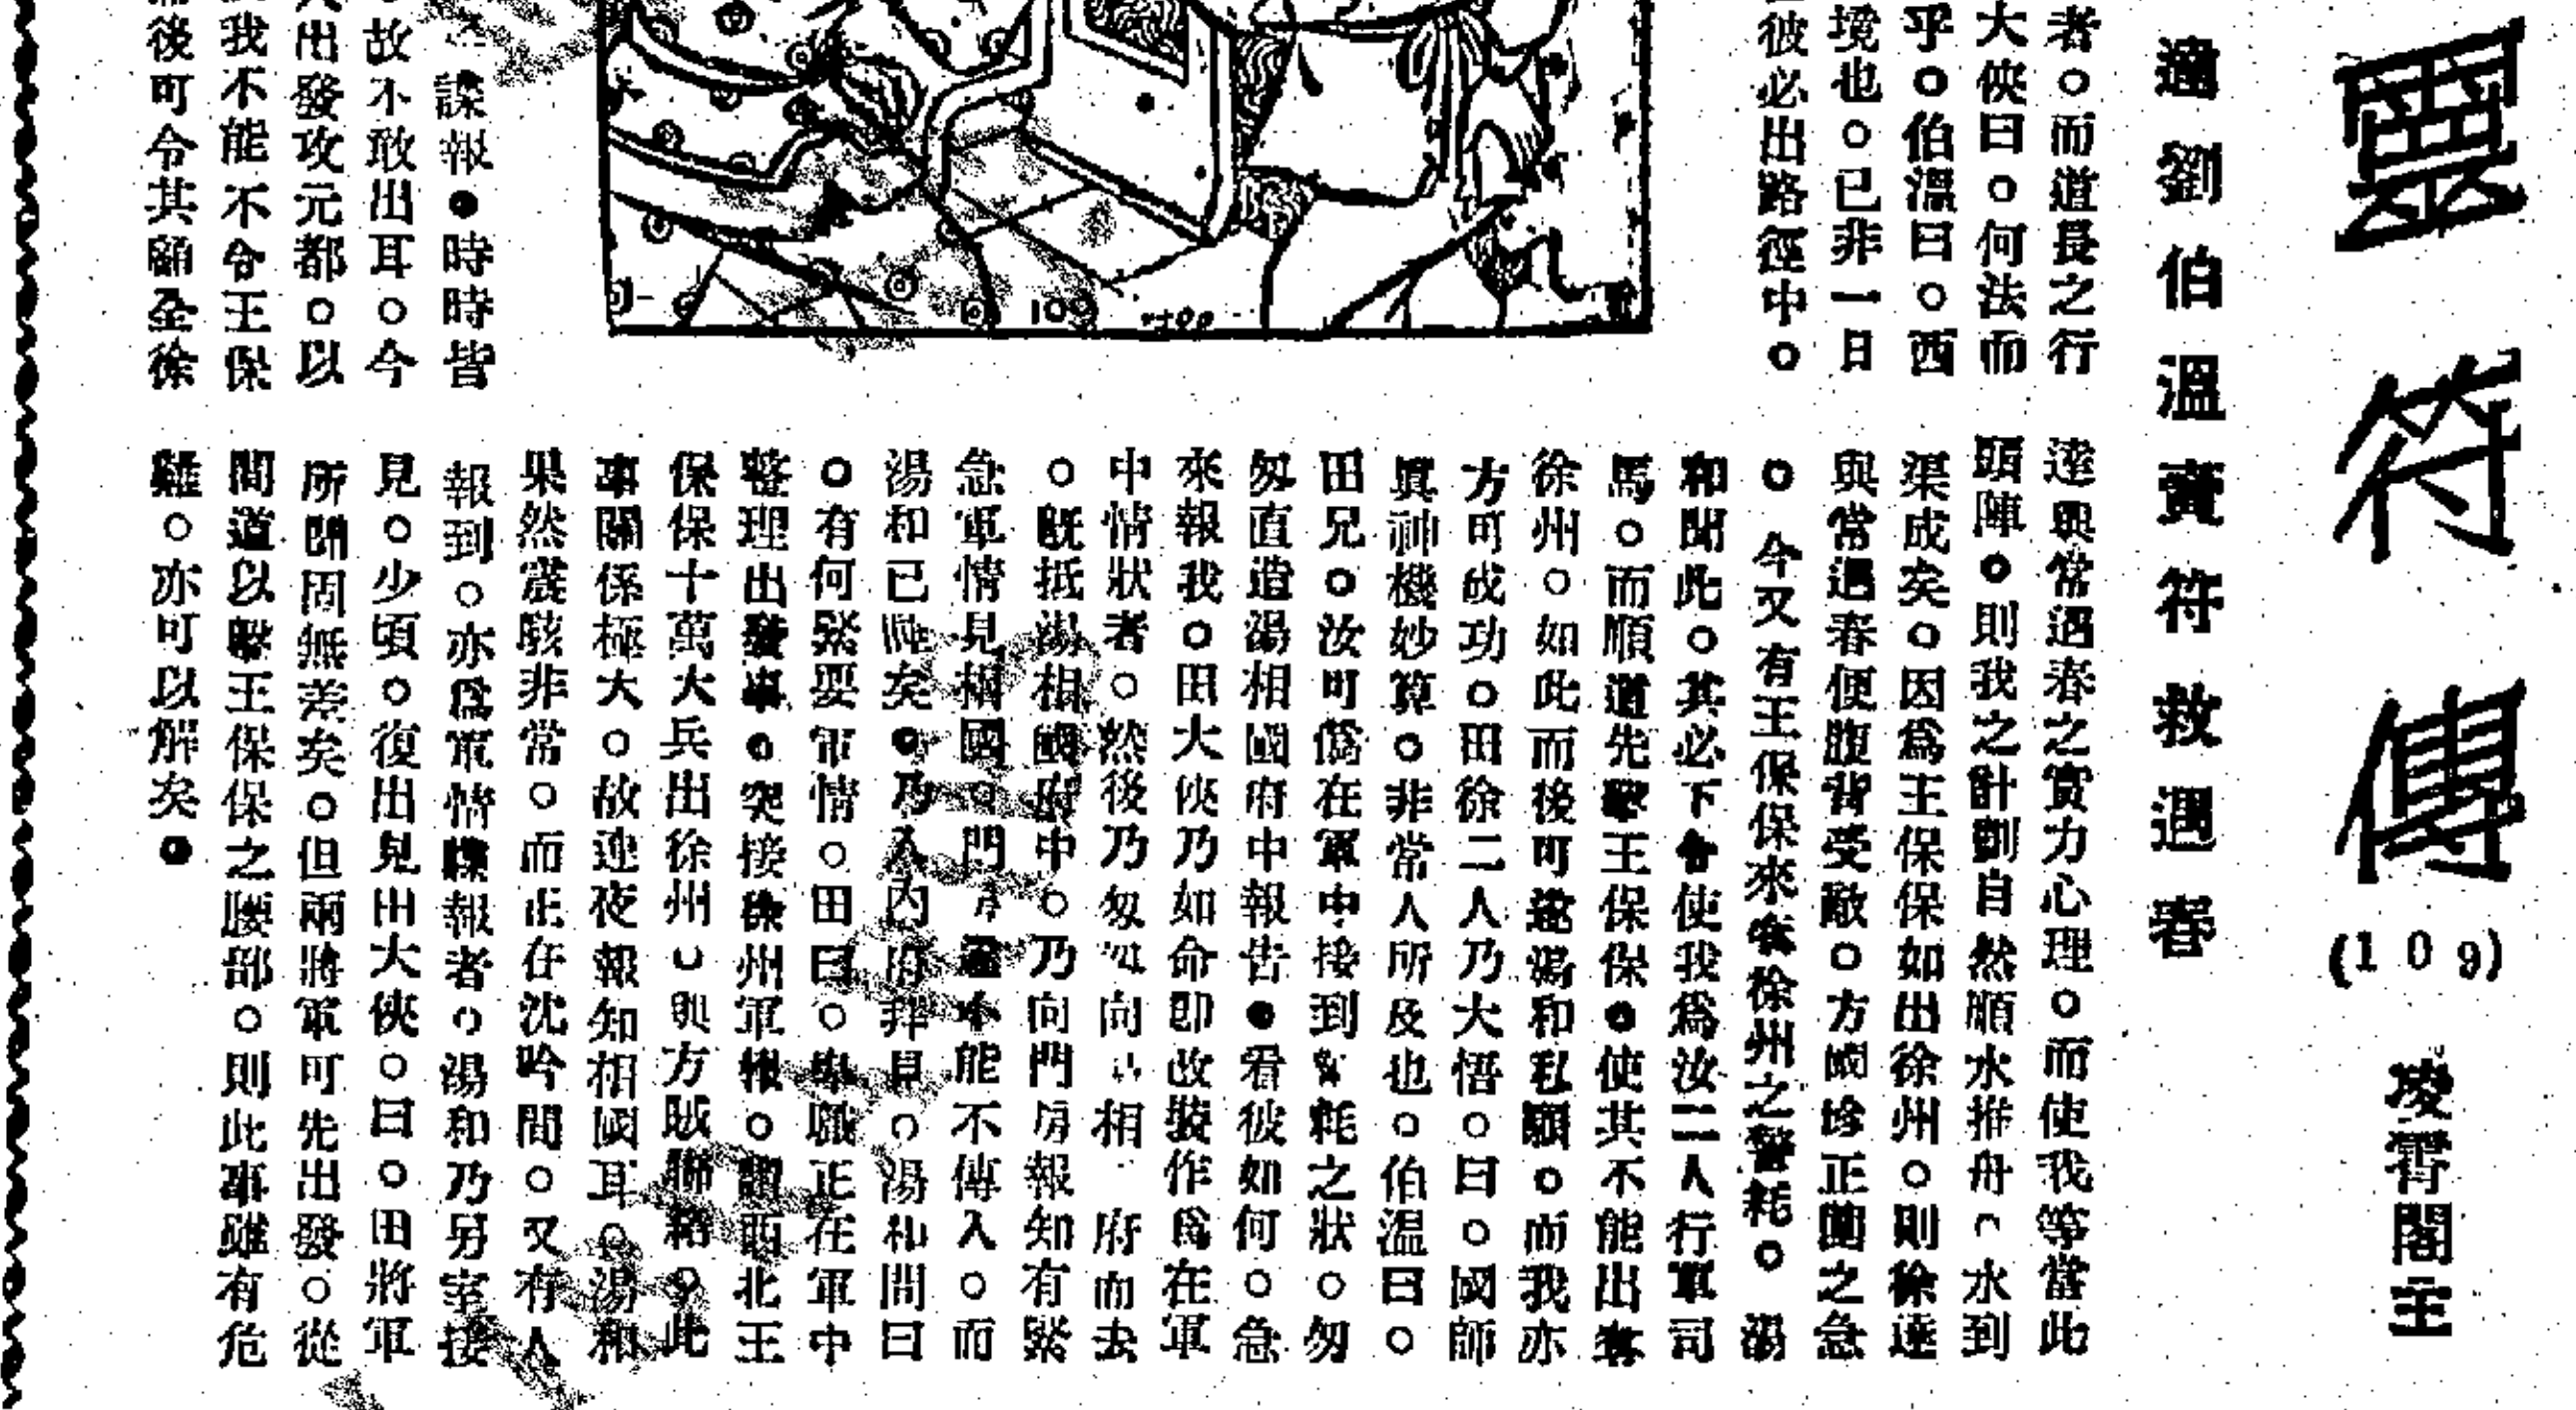 靈符傳
(109)
凌霄閣主
劉伯溫賣符救遇春
者○而道長之行
大俠曰○何法而
乎○伯溫曰○西
境也○已非一日
彼必出路徑中○
諜報●時時皆
故不敢出耳○今
出發攻元都○以
我不能不令王保
後可令其顧全徐
達與常遇春之實力心理○而使我等當此
頭陣●則我之計劃自然順水推舟○水到
渠成矣○因為王保保如出徐州○則徐達
與常遇春便腹背受敵○方國珍正圍之急
○今又有王保保來徐州之警耗○湯
和聞此○其必下令使我為汝二人行軍司
馬○而順道先擊王保保●使其不能出奪
徐州○如此而後可遂湯和私願○而我亦
方可成功○田徐二人乃大悟○曰○國師
眞神機妙算○非常人所及也○伯溫曰○
田兄○汝可偽在軍中接到耗之狀○匆
匆直造湯相國府中報告●看彼如何○急
來報我○田大俠乃如命即改裝作為在軍
中情狀者○然後乃匆向相府而去
○既抵湯相國府中○乃向門房報知有緊
急軍情見相國○門不能不傳入○而
湯和已矣●乃入內府拜見○湯和問曰
○有何緊要軍情○田曰○卑職正在軍中
整理出發事●突接徐州軍報○謂西北王
保保十萬大兵出徐州○與方賊聯絡○此
事關係極大○故連夜報知相國耳○湯和
果然震駭非常○而正在沈吟間○又有人
報到○亦為軍情諜報者○湯和乃另室接
見○少頃○復出見田大俠○曰○田將軍
所聞固無差矣○但兩將軍可先出發○從
間道以擊王保保之腰部○則此事雖有危
難○亦可以解矣●